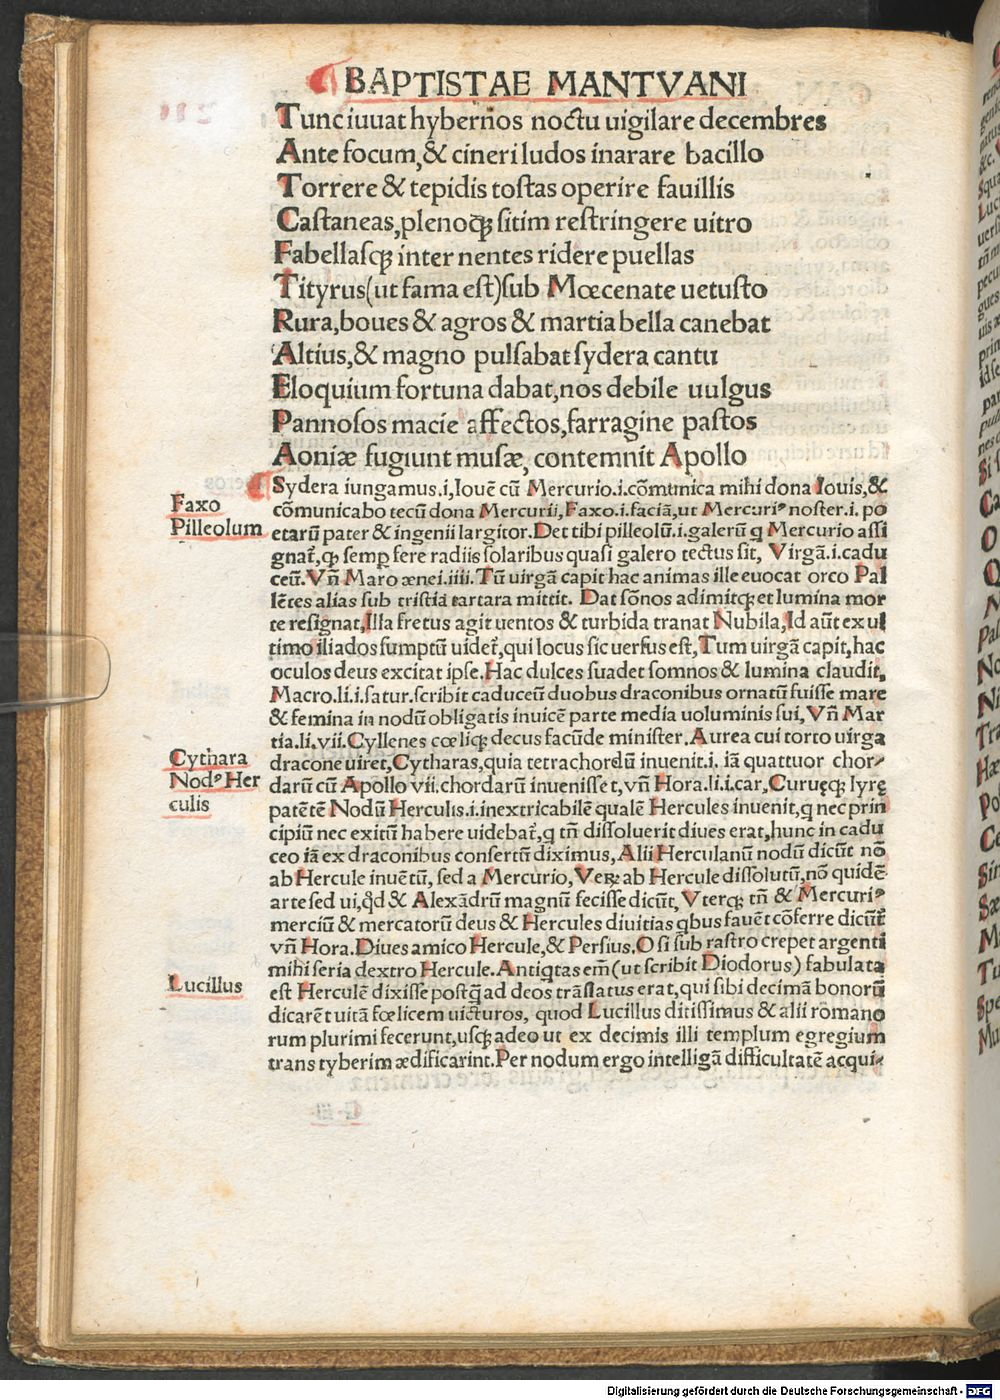 BAPTISTAE MANTVANI
Tunc iuuat hybernos noctu uigilare decembres
Ante focum, & cineri ludos inarare bacillo
Torrere & tepidis tostas operire fauillis
Castaneas, plenoqꝫ sitim restringere uitro
Fabellasqꝫ inter nentes ridere puellas
Tityrus (ut fama est) sub Mœcenate uetusto
Rura, boues & agros & martia bella canebat
Altius, & magno pulsabat sydera cantu
Eloquium fortuna dabat, nos debile uulgus
Pannosos macie affectos, farragine pastos
Aoniæ fugiunt musæ, contemnit Apollo
Sydera iungamus.i, Iouē cū Mercurio.i.cōmunica mihi dona Iouis, &
Faxo
cōmunicabo tecū dona Mercurii, Faxo.i.faciā, ut Mercuriꝰ noster.i. po
Pilleolum
etarū pater & ingenii largitor. Det tibi pilleolū.i.galerū q Mercurio assi
gnat̄, qꝫ semp fere radiis solaribus quasi galero tectus sit, Virgā.i.cadu
ceū. Vn̄ Maro ænei.iiii. Tū uirgā capit hac animas ille euocat orco Pal
lētes alias sub tristia tartara mittit. Dat sōnos adimitqꝫ et lumina mor
te resignat, Illa fretus agit uentos & turbida tranat Nubila, Id aūt ex ul
timo iliados sumptū uidet̄, qui locus sic uersus est, Tum uirgā capit, hac
oculos deus excitat ipse. Hac dulces suadet somnos & lumina claudit.
Macro.li.i.satur.scribit caduceū duobus draconibus ornatū fuisse mare
& femina in nodū obligatis inuicē parte media uoluminis sui, Vn̄ Mar
tia.li.vii. Cyllenes cœliqꝫ decus facūde minister. Aurea cui torto uirga
Cythara
dracone uiret, Cytharas, quia tetrachordū inuenit.i. iā quattuor chor-
Nodꝰ Her
darū cū Apollo vii.chordarū inuenisset, vn̄ Hora.li.i.car, Curuęqꝫ lyrę
culis
patētē Nodū Herculis.i.inextricabilē qualē Hercules inuenit, q nec prin
cipiū nec exitū habere uidebat̄, q tn̄ dissoluerit diues erat, hunc in cadu
ceo iā ex draconibus consertū diximus, Alii Herculanū nodū dicūt nō
ab Hercule inuētū, sed a Mercurio, Veꝝ ab Hercule dissolutū, nō quidē
arte sed ui, qd & Alexādrū magnū fecisse dicūt, Vterqꝫ tn̄ & Mercuriꝰ
merciū & mercatorū deus & Hercules diuitias qbus fauēt cōferre dicūt̄
vn̄ Hora. Diues amico Hercule, & Persius. O si sub rastro crepet argenti
mihi seria dextro Hercule. Antiqtas em̄ (ut scribit Diodorus) fabulata
Lucillus
est Herculē dixisse postq̄ ad deos trāslatus erat, qui sibi decimā bonorū
dicarēt uitā fœlicem uicturos, quod Lucillus ditissimus & alii romano
rum plurimi fecerunt, usqꝫ adeo ut ex decimis illi templum egregium
trans tyberim ædificarint. Per nodum ergo intelligā difficultatē acqui-
Digitalisierung gefördert durch die Deutsche Forschungsgemeinschaft - DFG